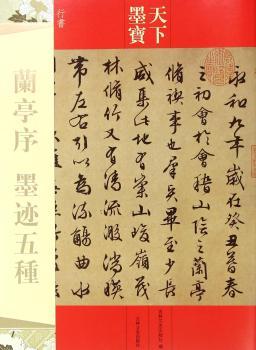 天下墨寶
行書
蘭亭序 墨迹五種
永和九年歲在癸丑暮春
之初會于會稽山陰之蘭亭
脩禊事也群賢畢至少長
咸集此地有崇山峻領茂
林脩竹又有清流激湍暎
帶左右引以為流觴曲水